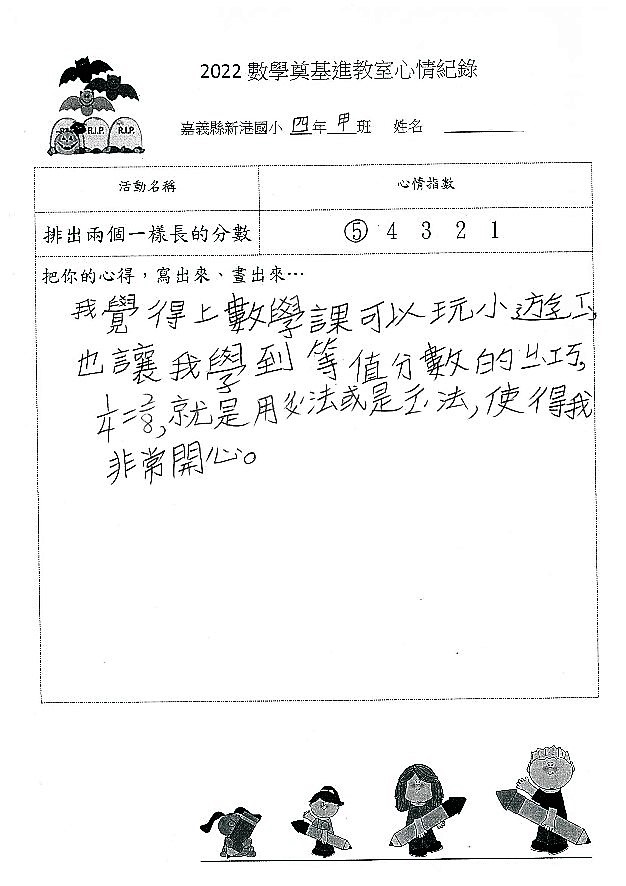 2022 數學奠基進教室心情紀錄
嘉義縣新港國小 四年 甲班 姓名
R.I.P. R.I.P.
活動名稱 心情指數
排出兩個一樣長的分數 ⑤ 4 3 2 1
把你的心得，寫出來、畫出來…
我覺得上數學課可以玩小遊
也讓我學到等值分數的巧,
1/4=2/8,就是用 法或是 法,使得我
非常開心。